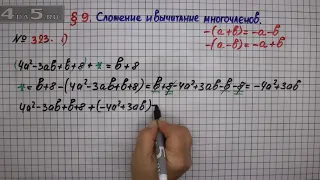 4DA5.RU
§ 9. Сложение и вычитание многочленов.
№ 323. 1)
-(a+b)=-a-b
-(a-b)=-a+b
(4a²-3ab+b+8 + * = b+8
* = b+8-(4a²-3ab+b+8)=b+8-4a²+3ab-b-8=-4a²+3ab
4a²-3ab+b+8+(-4a²+3ab)=